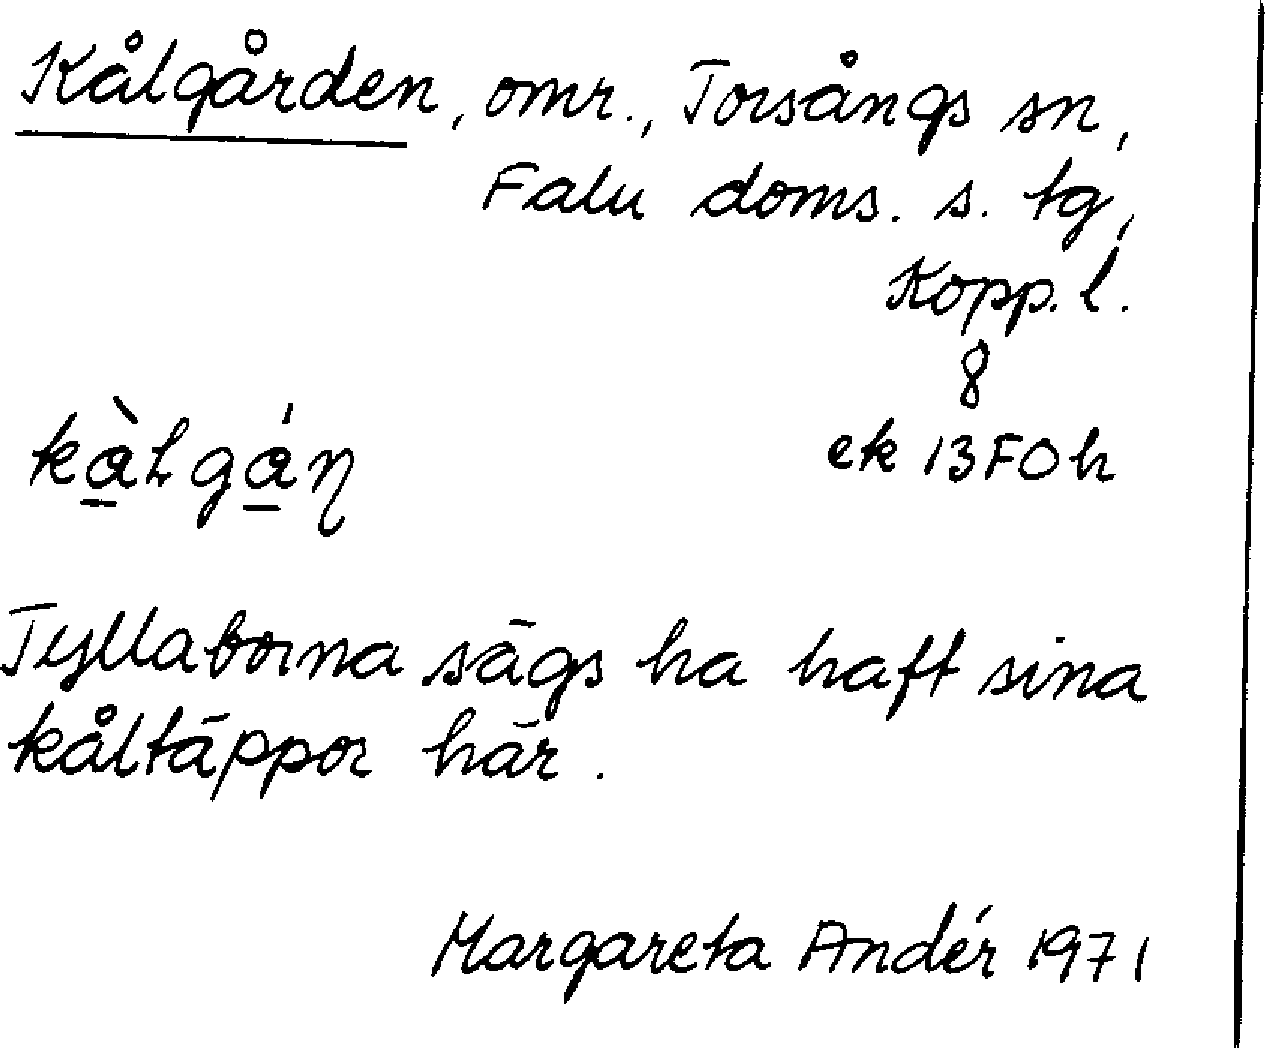 Kålgården, omr., Torsångs sn,
Falu doms. s. tg,
Kopp. l.
8
ek 13F0h
kàLgáņ
Tyllaborna sägs ha haft sina
kåltäppor här.
Margareta Andér 1971